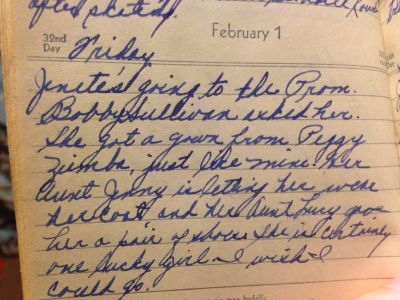 after skating.
February 1
32nd
Day
Friday
Jinete's going to the Prom.
Bobby Sullivan asked her.
She got a gown from Peggy
Zimba, just like mine. Her
Aunt Jenny is letting her wear
her coat and her Aunt Lucy gave
her a pair of shoes. She is certainly
one lucky girl. I wish I
could go.